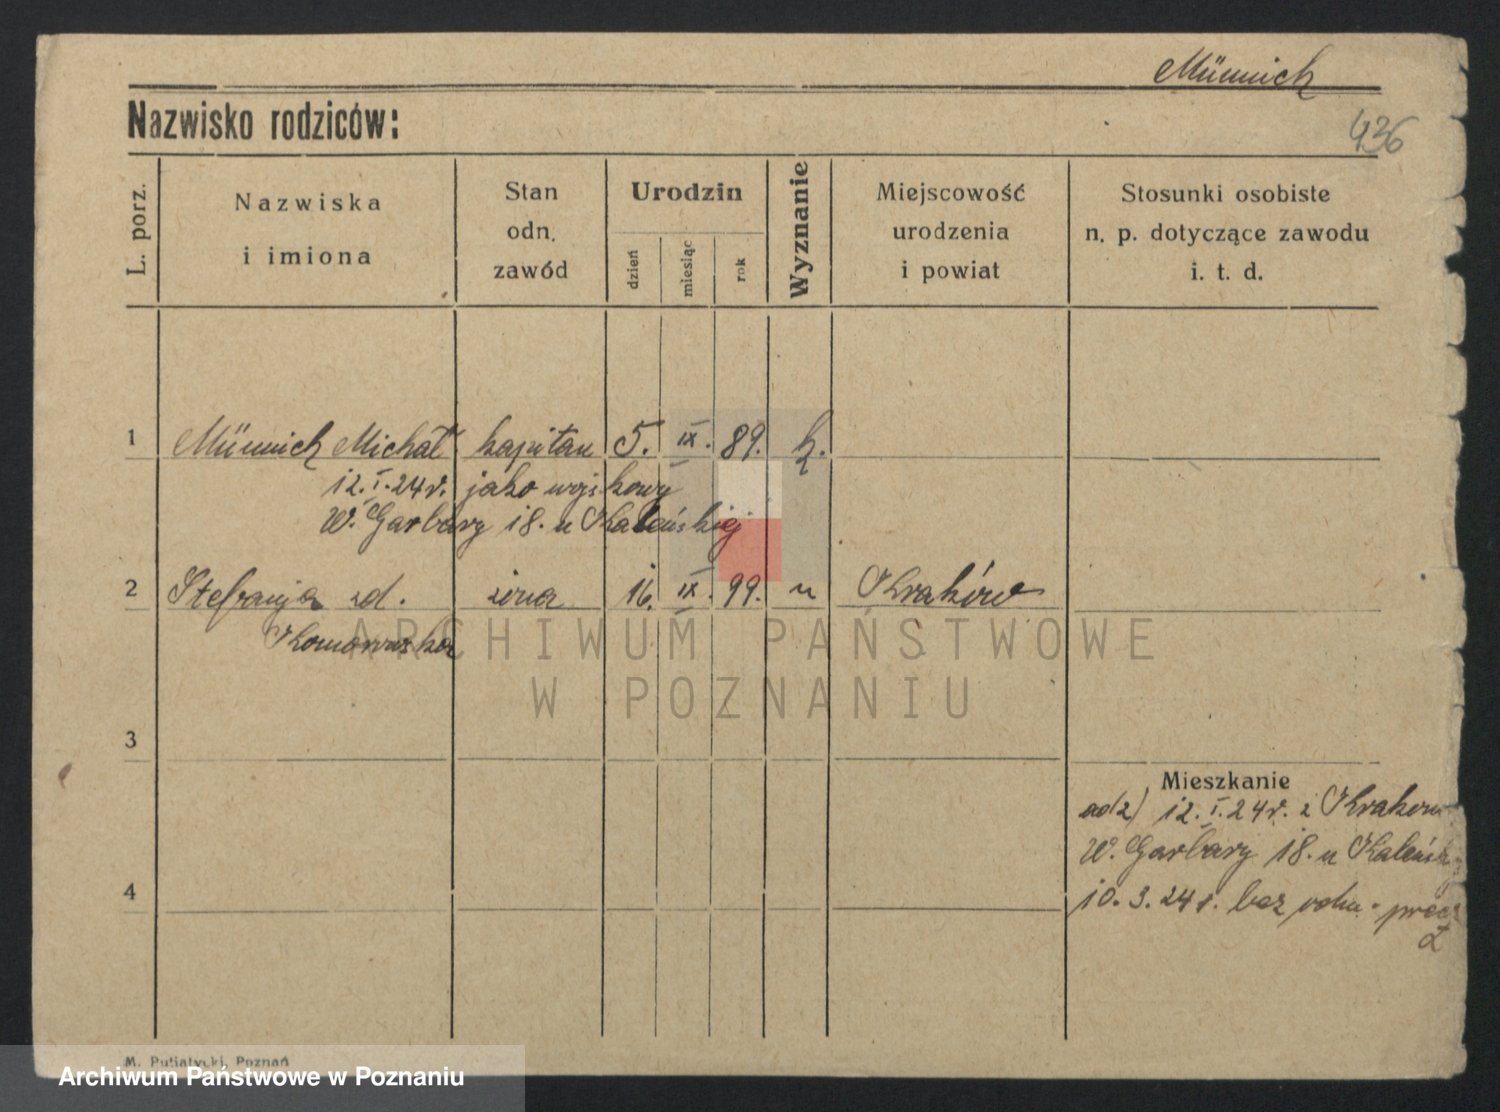 Münnich
Nazwisko rodziców:
436
L. porz.
Nazwiska
i imiona
Stan
odn.
zawód
Urodzin
dzień
miesiąc
rok
Wyznanie
Miejscowość
urodzenia
i powiat
Stosunki osobiste
n. p. dotyczące zawodu
i. t. d.
1 Münnich Michał kapitan 5. IX. 89. k.
12. I. 24 r. jako wojskowy
W. Garbary 18. u Kaleńskiej
2 Stefanja zd. żona 16. IX. 99. " Kraków
Komorowska
ARCHIWUM PAŃSTWOWE
W POZNANIU
3
Mieszkanie
ad 2) 12. I. 24 r. z Krakowa
W. Garbary 18. u Kaleńsk
4
10. 3. 24 r. bez
M. Putiatycki, Poznań
Archiwum Państwowe w Poznaniu